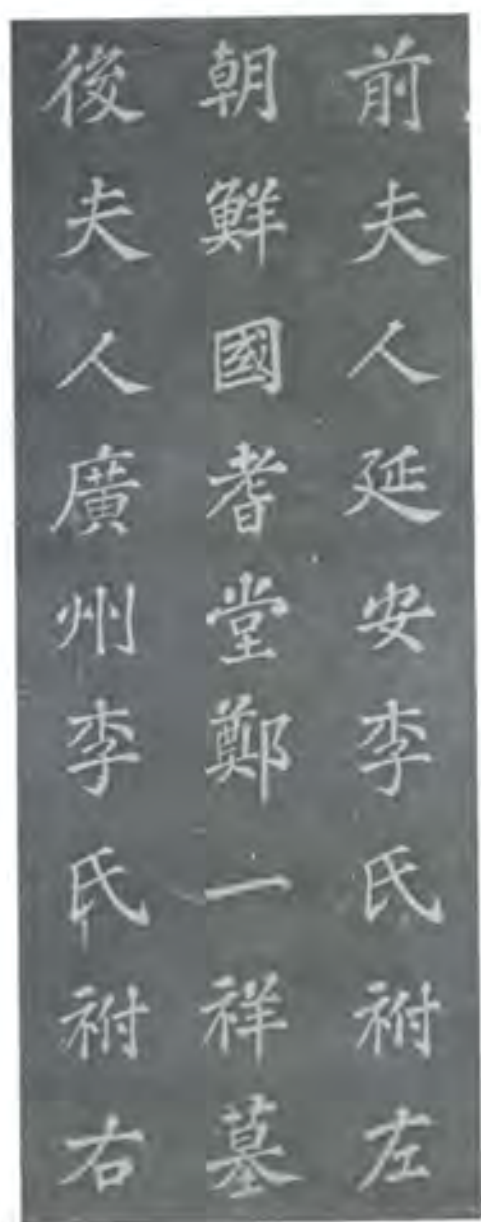 前夫人延安李氏祔左
朝鮮國耆堂鄭一祥墓
後夫人廣州李氏祔右